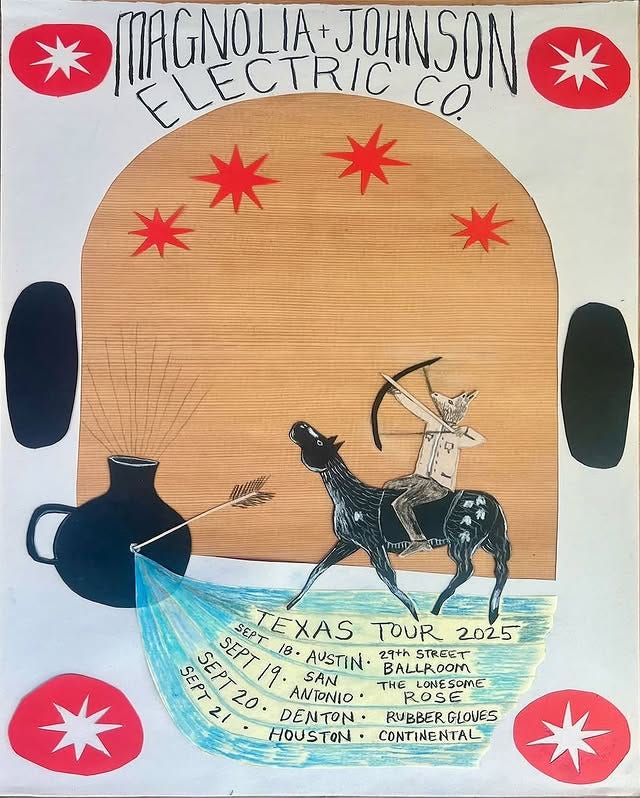 MAGNOLIA + JOHNSON
ELECTRIC CO.
TEXAS TOUR 2025
SEPT 18 · AUSTIN · 29th STREET BALLROOM
SEPT 19 · SAN ANTONIO · THE LONESOME ROSE
SEPT 20 · DENTON · RUBBER GLOVES
SEPT 21 · HOUSTON · CONTINENTAL